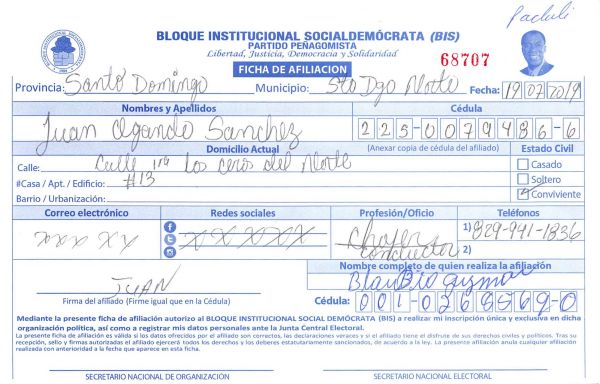 Pachuli
BLOQUE INSTITUCIONAL SOCIALDEMÓCRATA (BIS)
PARTIDO PEÑAGOMISTA
Libertad, Justicia, Democracia y Solidaridad
68707
FICHA DE AFILIACION
Provincia: Santo Domingo Municipio: Sto Dgo Norte Fecha: 19/07/2019
Nombres y Apellidos Cédula
Juan Ogando Sanchez 225-0079486-6
Domicilio Actual (Anexar copia de cédula del afiliado) Estado Civil
Calle: Calle 1ra Los ceros del Norte Casado
#Casa / Apt. / Edificio: #13 Soltero
Barrio / Urbanización: Conviviente
Correo electrónico Redes sociales Profesión/Oficio Teléfonos
xxx xxx XXXXXX Chofer 1) 829-941-1836
conductor 2)
Nombre completo de quien realiza la afiliación
JUAN Blas guzman
Firma del afiliado (Firme igual que en la Cédula) Cédula: 001-0268569-0
Mediante la presente ficha de afiliación autorizo al BLOQUE INSTITUCIONAL SOCIAL DEMÓCRATA (BIS) a realizar mi inscripción única y exclusiva en dicha
organización política, así como a registrar mis datos personales ante la Junta Central Electoral.
La presente ficha de afiliación es válida si los datos ofrecidos por el afiliado son correctos, las declaraciones veraces y si el afiliado tiene el disfrute de sus derechos civiles y políticos. Tras su
recepción, sello y firmas autorizadas el afiliado ejercerá todos los derechos y los deberes estatutariamente sancionados, de acuerdo a la ley. La presente afiliación anula cualquier afiliación
realizada con anterioridad a la fecha que aparece en esta ficha.
SECRETARIO NACIONAL DE ORGANIZACIÓN SECRETARIO NACIONAL ELECTORAL